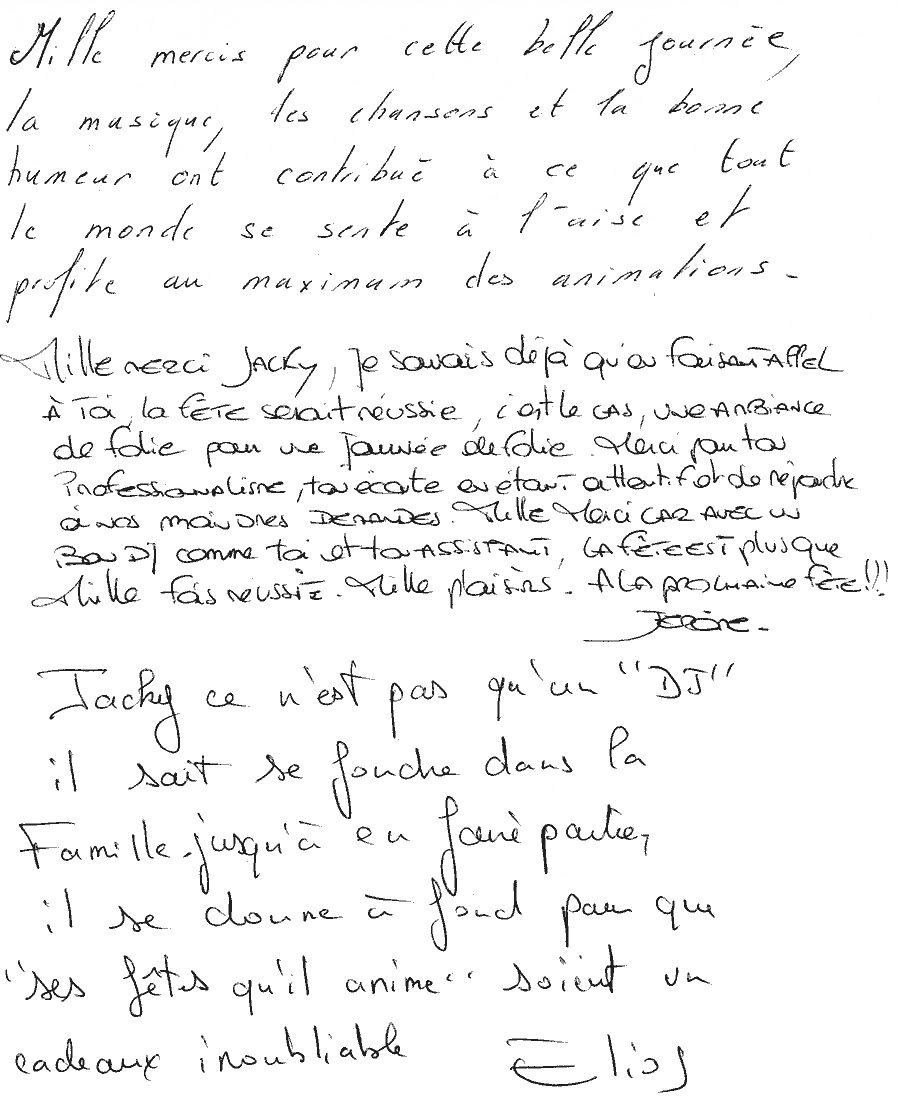 Mille mercis pour cette belle journée,
la musique, les chansons et la bonne
humeur ont contribué à ce que tout
le monde se sente à l'aise et
profite au maximum des animations.
Mille merci JACKY, je savais déjà qu'en faisant APPEL
À Toi, la fête serait réussie, c'est le CAS, une AMBIANCE
de folie pour une journée de folie. Merci pour ton
Professionnalisme, ton écoute en étant attentif et de répondre
à nos moindres DEMANDES. Mille Merci CAR AVEC un
Bon DJ comme toi et ton ASSISTANT, LA FÊTE EST plus que
Mille fois réussie. Mille plaisirs. A LA PROCHAINE fête!!!
Jérôme.
Jacky ce n'est pas qu'un "DJ"
il sait se fondre dans la
Famille jusqu'à en faire partie,
il se donne à fond pour que
"ses fêtes qu'il anime" soient un
cadeaux inoubliable Elios